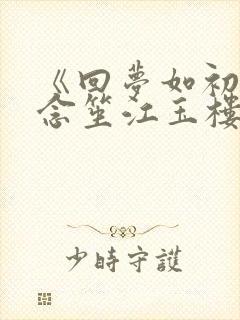 《回夢如初
念笙江玉樓
少時守護